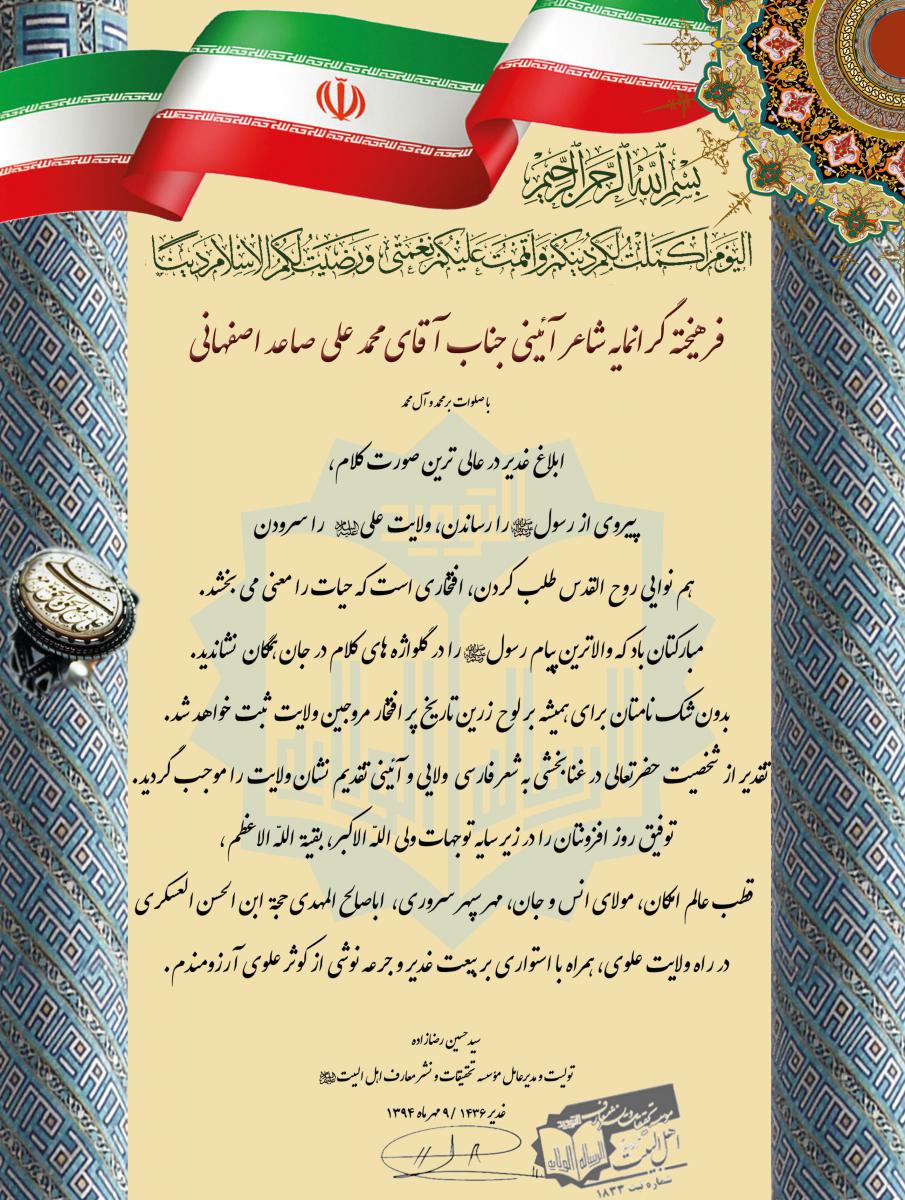 بسم الله الرحمن الرحیم
الیوم اکملت لکم دینکم و اتممت علیکم نعمتی و رضیت لکم الاسلام دینا
فرهیخته گرانمایه شاعر آئینی جناب آقای محمد علی صاعد اصفهانی
با صلوات بر محمد و آل محمد
ابلاغ غدیر در عالی ترین صورت کلام،
پیروی از رسول ﷺ را رساندن، ولایت علی علیه‌السلام را سرودن
هم نوایی روح القدس طلب کردن، افتخاری است که حیات را معنی می بخشد.
مبارکتان باد که والاترین پیام رسول ﷺ را در گلواژه های کلام در جان همگان نشاندید.
بدون شک نامتان برای همیشه بر لوح زرین تاریخ پر افتخار مروجین ولایت ثبت خواهد شد.
تقدیر از شخصیت حضرتعالی در غنا بخشی به شعر فارسی ولایی و آئینی تقدیم نشان ولایت را موجب گردید.
توفیق روز افزونتان را در زیر سایه توجهات ولی اللّه الاکبر، بقیة اللّه الاعظم،
قطب عالم امکان، مولای انس و جان، مهر سپهر سروری، اباصالح المهدی حجة ابن الحسن العسکری
در راه ولایت علوی، همراه با استواری بر بیعت غدیر و جرعه نوشی از کوثر علوی آرزومندم.
سید حسین رضازاده
تولیت و مدیر عامل مؤسسه تحقیقات و نشر معارف اهل البیت علیهم‌السلام
غدیر ۱۴۳۶ / ۹ مهر ماه ۱۳۹۴
موسسه تحقیقات و نشر معارف
اهل البیت
الرسالة الولایة
شماره ثبت ۱۸۳۳